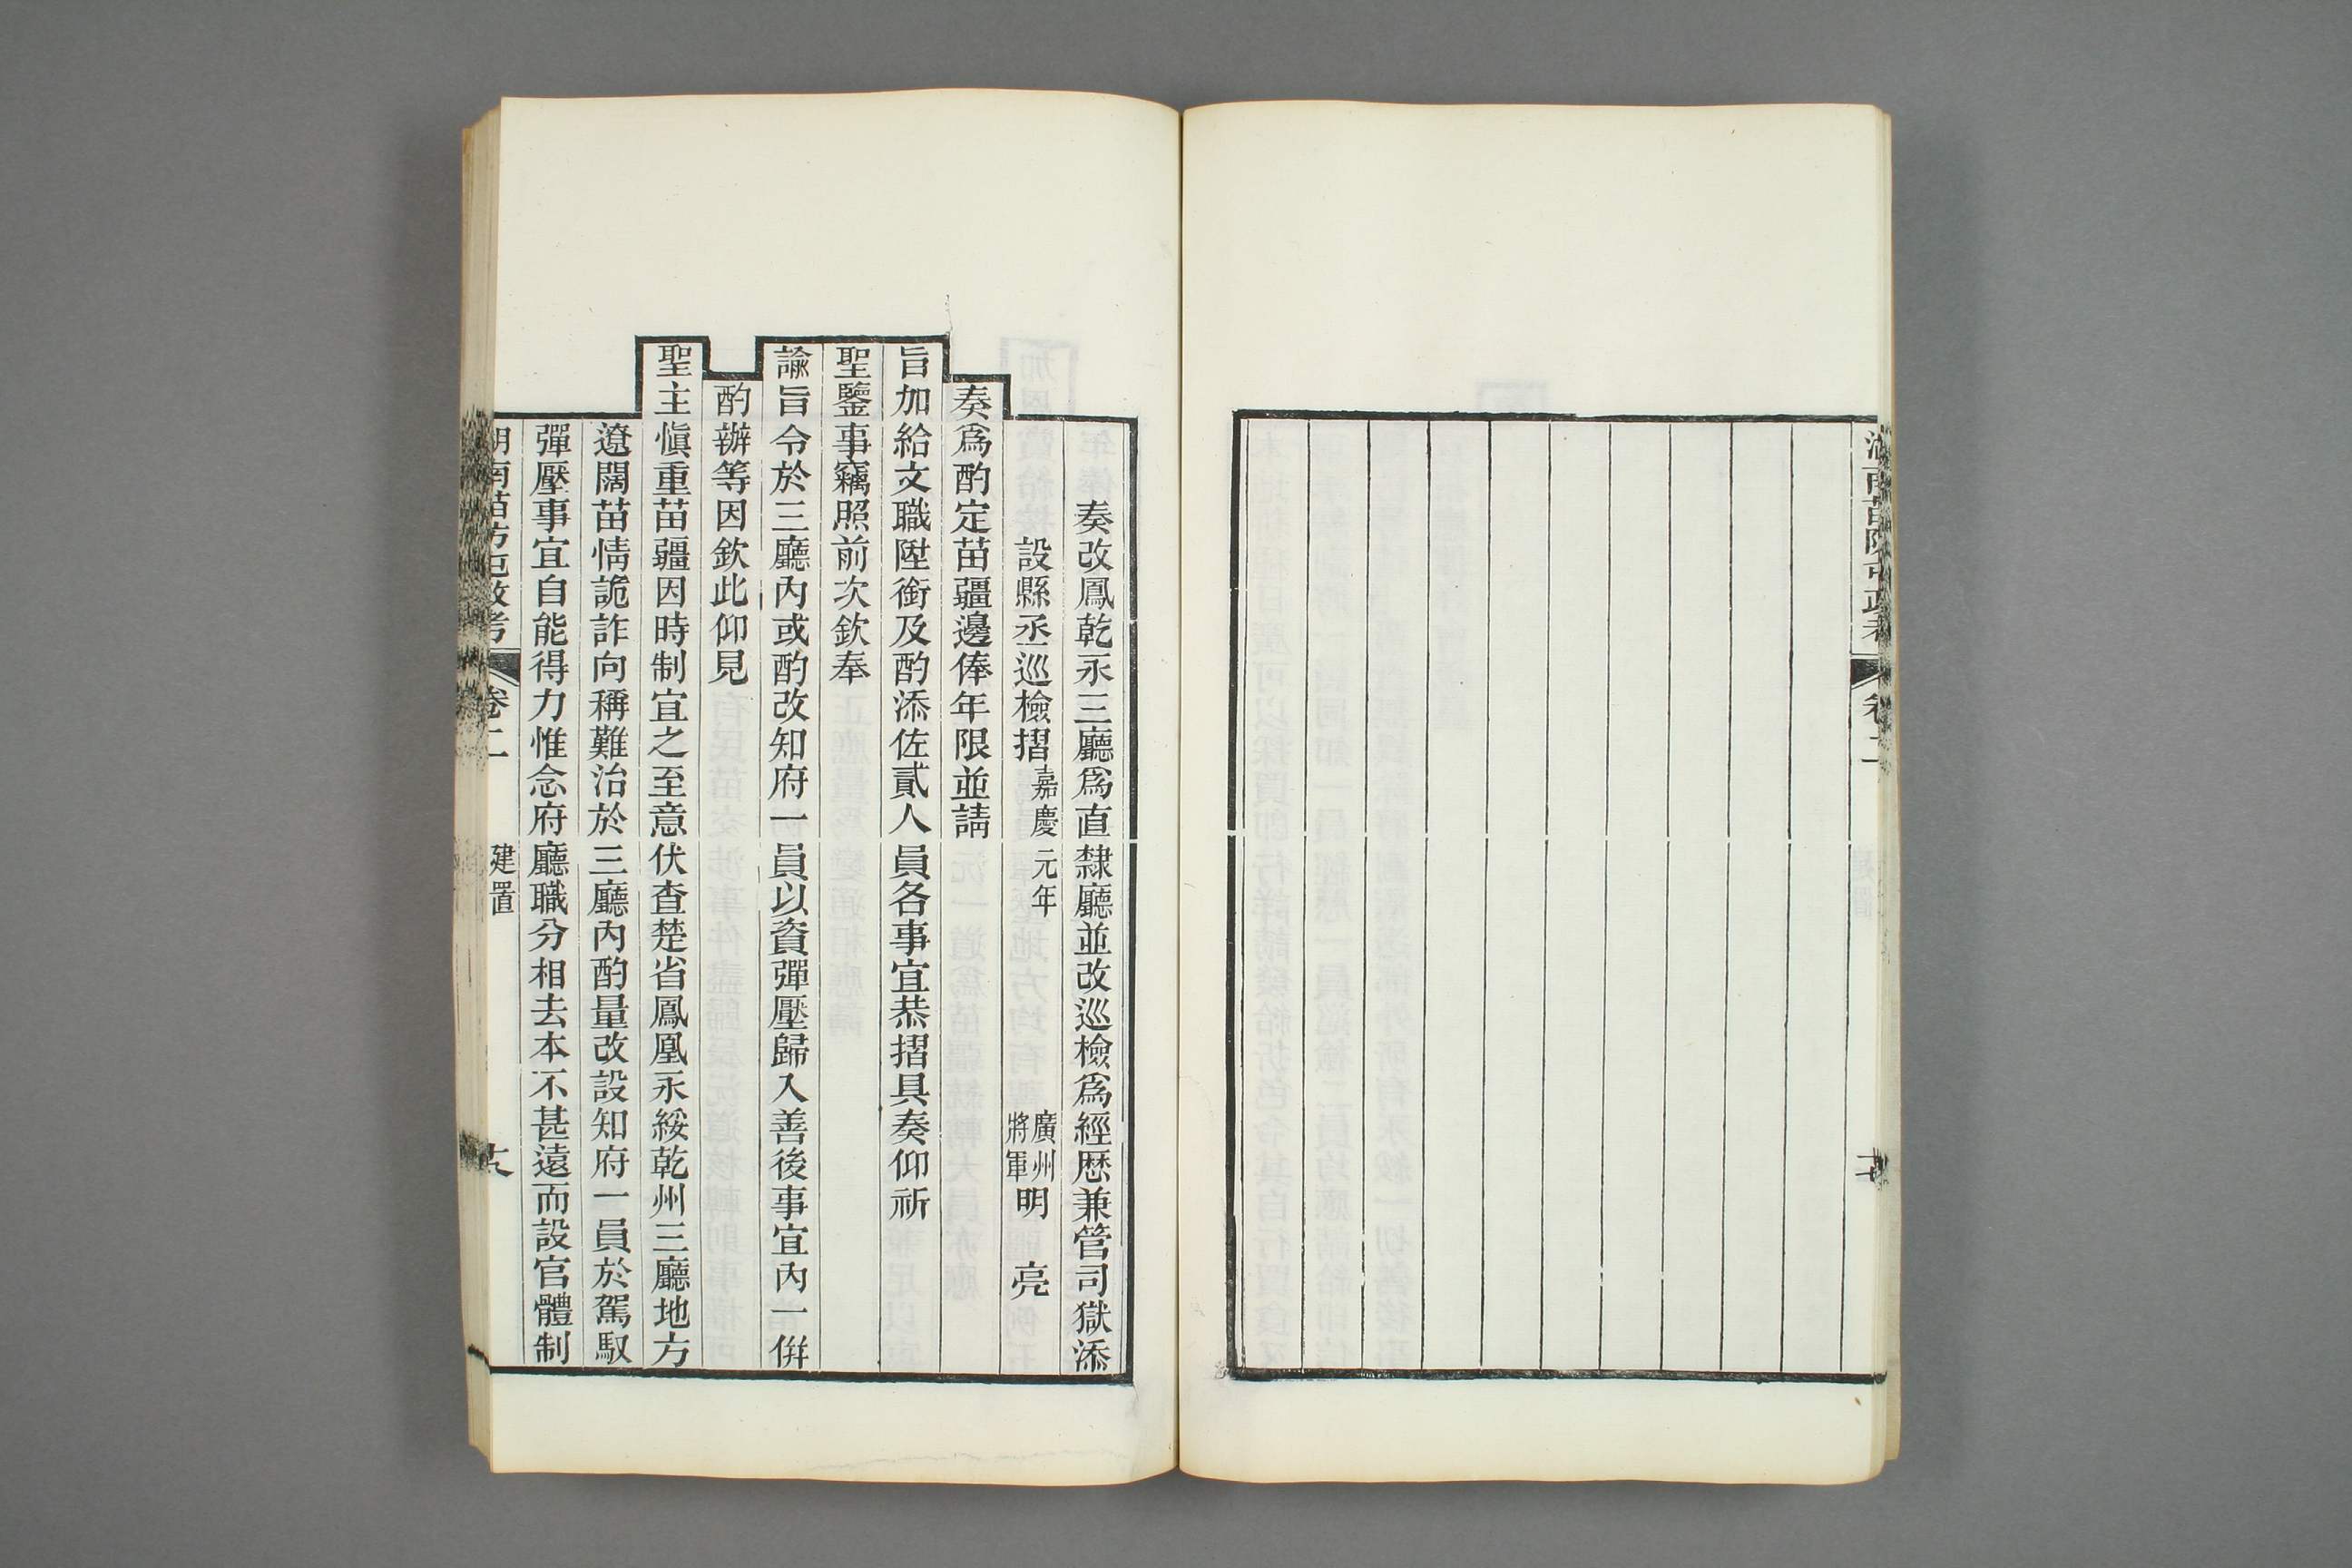 湖南苗防屯政考 卷二
奏改鳳乾永三廳爲直隸廳並改巡檢爲經歷兼管司獄添
設縣丞巡檢摺 嘉慶元年 廣州將軍明 亮
奏爲酌定苗疆邊俸年限並請
旨加給文職陞銜及酌添佐貳人員各事宜恭摺具奏仰祈
聖鑒事竊照前次欽奉
諭旨令於三廳內或酌改知府一員以資彈壓歸入善後事宜內一併
酌辦等因欽此仰見
聖主慎重苗疆因時制宜之至意伏查楚省鳳凰永綏乾州三廳地方
遼闊苗情詭詐向稱難治於三廳內酌量改設知府一員於駕馭
彈壓事宜自能得力惟念府廳職分相去本不甚遠而設官體制
湖南苗防屯政考 卷二 建置 十八